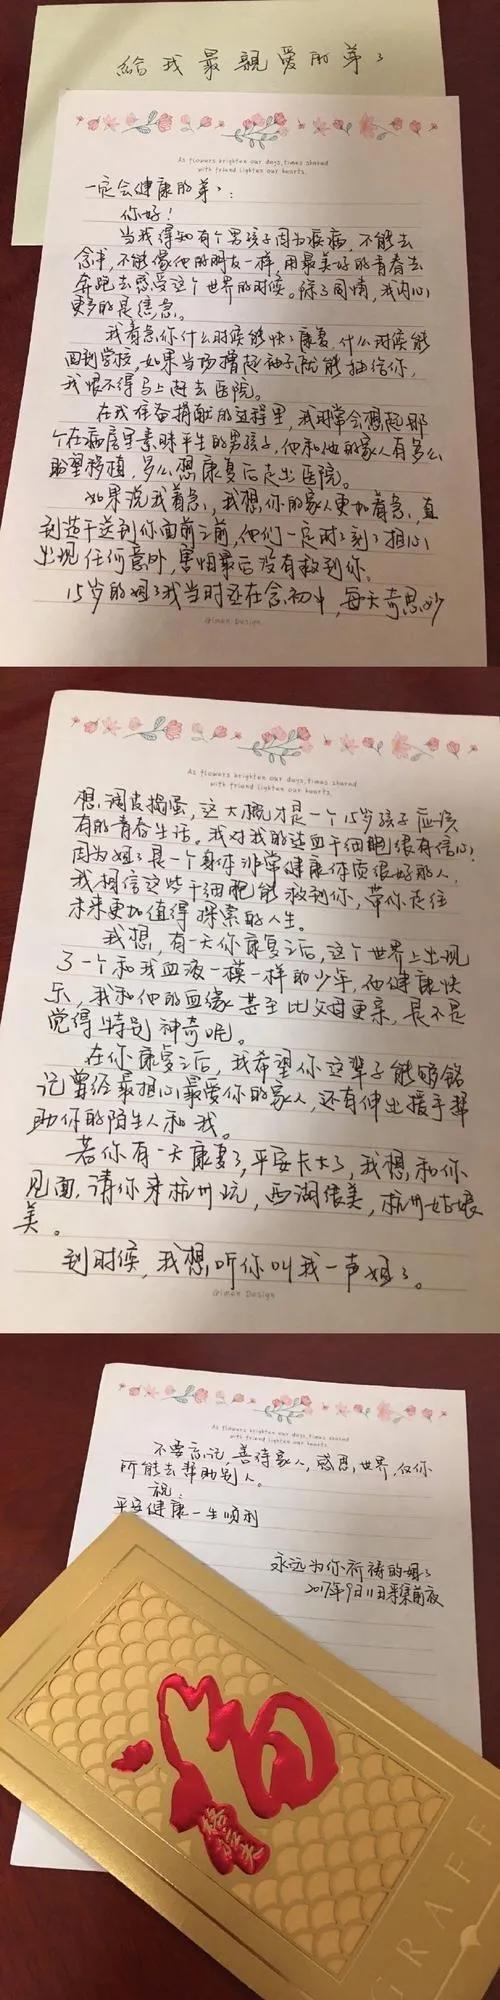 給我最親愛的弟弟
As flowers brighten our days, times shared
with friend lighten our hearts.
一定会健康的弟弟：
你好！
当我得知有个男孩子因为疾病，不能去
念书，不能像他的朋友一样，用最美好的青春去
奔跑去感受这个世界的时候。除了同情，我内心
更多的是着急。
我着急你什么时候能快快康复，什么时候能
回到学校，如果当场撸起袖子就能抽给你，
我恨不得马上赶去医院。
在我准备捐献的过程里，我时常会想起那
个在病房里素昧平生的男孩子，他和他的家人有多么
盼望移植，多么想康复后走出医院。
如果说我着急，我想你的家人更加着急，直
到造干送到你面前之前，他们一定时时刻刻担心
出现任何意外，害怕最后没有救到你。
15岁的姐姐我当时还在念初中，每天奇思妙
@imon Design
As flowers brighten our days, times shared
with friend lighten our hearts.
想，调皮捣蛋，这大概才是一个15岁孩子应该
有的青春生活。我对我的造血干细胞很有信心，
因为姐姐是一个身体非常健康体质很好的人，
我相信这些干细胞能救到你，带你走往
未来更加值得探索的人生。
我想，有一天你康复之后，这个世界上出现
了一个和我血液一模一样的少年，他健康快
乐，我和他的血缘甚至比父母更亲，是不是
觉得特别神奇呢。
在你康复之后，我希望你这辈子能够铭
记曾经最担心最爱你的家人，还有伸出援手帮
助你的陌生人和我。
若你有一天康复了，平安长大了，我想和你
见面，请你来杭州玩，西湖很美，杭州姑娘
美。
到时候，我想听你叫我一声姐姐。
@imon Design
As flowers brighten our days, times shared
with friend lighten our hearts.
不要忘记，善待家人，感恩世界，仅你
所能去帮助别人。
祝：
平安健康一生顺利
永远为你祈祷的姐姐
2017年9月11日采集前夜
福
GRAFF